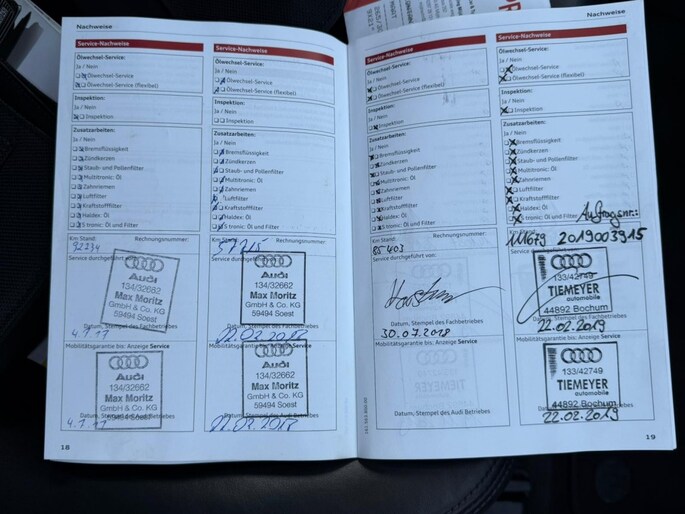 Nachweise
Service-Nachweise
Ölwechsel-Service:
Ja / Nein
Ölwechsel-Service
Ölwechsel-Service (flexibel)
Inspektion:
Ja / Nein
Inspektion
Zusatzarbeiten:
Ja / Nein
Bremsflüssigkeit
Zündkerzen
Staub- und Pollenfilter
Multitronic: Öl
Zahnriemen
Luftfilter
Kraftstofffilter
Haldex: Öl
S tronic: Öl und Filter
Km Stand:
Rechnungsnummer:
Service durchgeführt
Audi
134/32662
Max Moritz
GmbH & Co. KG
59494 Soest
Datum, Stempel des Fachbetriebes
4.1.17
Mobilitätsgarantie bis: Anzeige Service
Audi
134/32662
Max Moritz
GmbH & Co. KG
59494 Soest
Datum, Stempel des Audi Betriebes
4.1.17
18
Service-Nachweise
Ölwechsel-Service:
Ja / Nein
Ölwechsel-Service
Ölwechsel-Service (flexibel)
Inspektion:
Ja / Nein
Inspektion
Zusatzarbeiten:
Ja / Nein
Bremsflüssigkeit
Zündkerzen
Staub- und Pollenfilter
Multitronic: Öl
Zahnriemen
Luftfilter
Kraftstofffilter
Haldex: Öl
S tronic: Öl und Filter
Km Stand:
Rechnungsnummer:
Service durchgeführt
Audi
134/32662
Max Moritz
GmbH & Co. KG
59494 Soest
Datum, Stempel des Fachbetriebes
Mobilitätsgarantie bis: Anzeige Service
Audi
134/32662
Max Moritz
GmbH & Co. KG
59494 Soest
Datum, Stempel des Audi Betriebes
Service-Nachweise
Ölwechsel-Service:
Ja / Nein
Ölwechsel-Service
Ölwechsel-Service (flexibel)
Inspektion:
Ja / Nein
Inspektion
Zusatzarbeiten:
Ja / Nein
Bremsflüssigkeit
Zündkerzen
Staub- und Pollenfilter
Multitronic: Öl
Zahnriemen
Luftfilter
Kraftstofffilter
Haldex: Öl
S tronic: Öl und Filter
Km Stand:
Rechnungsnummer:
85 403
Service durchgeführt von:
Datum, Stempel des Fachbetriebes
30.07.2018
Mobilitätsgarantie bis: Anzeige Service
Datum, Stempel des Audi Betriebes
Nachweise
Service-Nachweise
Ölwechsel-Service:
Ja / Nein
Ölwechsel-Service
Ölwechsel-Service (flexibel)
Inspektion:
Ja / Nein
Inspektion
Zusatzarbeiten:
Ja / Nein
Bremsflüssigkeit
Zündkerzen
Staub- und Pollenfilter
Multitronic: Öl
Zahnriemen
Luftfilter
Kraftstofffilter
Haldex: Öl
S tronic: Öl und Filter
Auftragsnr.:
Km Stand:
Rechnungsnummer:
111679 2019003915
Service durchgeführt
133/42749
TIEMEYER
automobile
44892 Bochum
Datum, Stempel des Fachbetriebes
22.02.2019
Mobilitätsgarantie bis: Anzeige Service
133/42749
TIEMEYER
automobile
44892 Bochum
Datum, Stempel des Audi Betriebes
22.02.2019
19